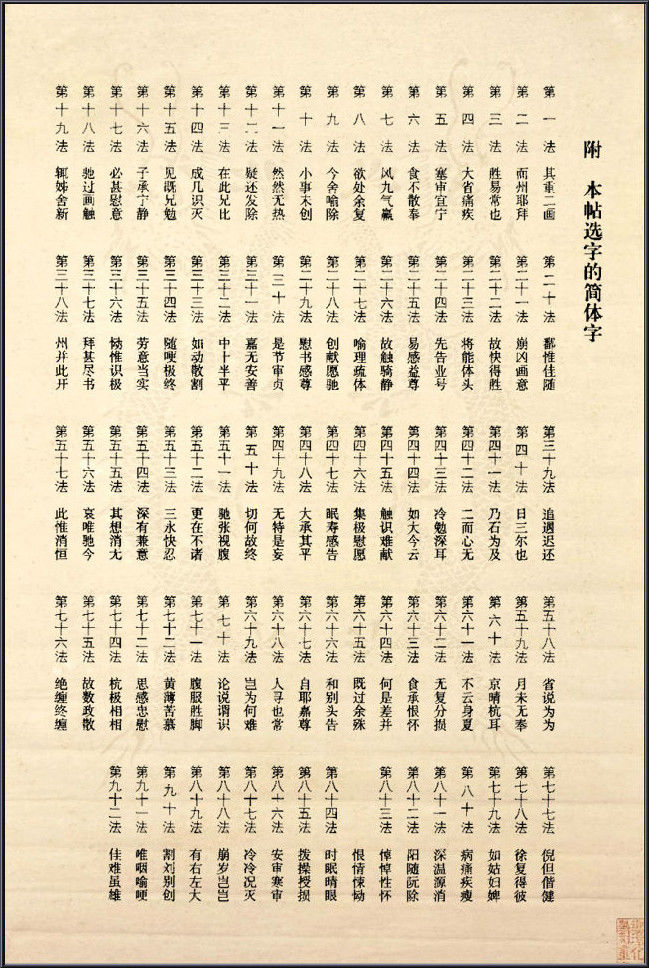 附 本帖选字的简体字
第一法 其重二画
第二法 而州耶拜
第三法 胜易常也
第四法 大省痛疾
第五法 塞审宜宁
第六法 食不散奉
第七法 风九气羸
第八法 欲处余复
第九法 今舍喻除
第十法 小事末创
第十一法 然然无热
第十二法 疑还发除
第十三法 在此兄比
第十四法 成几识灭
第十五法 见既兄勉
第十六法 子承宁静
第十七法 必甚慰意
第十八法 驰过画触
第十九法 辄姊舍新
第二十法 鄱惟佳随
第二十一法 崩凶画意
第二十二法 故快得胜
第二十三法 将能体头
第二十四法 先告业号
第二十五法 易感益尊
第二十六法 故触骑静
第二十七法 喻理疏体
第二十八法 创献愿驰
第二十九法 慰书感尊
第三十法 是节审贞
第三十一法 嘉无安善
第三十二法 中十半平
第三十三法 如动散割
第三十四法 随哽极终
第三十五法 劳意当实
第三十六法 恸惟识极
第三十七法 拜甚尽书
第三十八法 州并此开
第三十九法 追遇迟还
第四十法 日三尔也
第四十一法 乃石为及
第四十二法 二而心无
第四十三法 冷勉深耳
第四十四法 如大今云
第四十五法 触识难献
第四十六法 集极慰愿
第四十七法 眠寿感告
第四十八法 大承其平
第四十九法 无特是妄
第五十法 切何故终
第五十一法 驰张视腹
第五十二法 更在不诸
第五十三法 三永快忍
第五十四法 深有兼意
第五十五法 其想消尢
第五十六法 哀唯驰今
第五十七法 此惟消恒
第五十八法 省说为为
第五十九法 月未无奉
第六十法 京晴杭耳
第六十一法 不云身夏
第六十二法 无复分损
第六十三法 食承恨怀
第六十四法 何是差并
第六十五法 既过余殊
第六十六法 和别头告
第六十七法 自耶嘉尊
第六十八法 人寻也常
第六十九法 岂为何难
第七十法 论说谓识
第七十一法 腹服胜脚
第七十二法 黄薄苦慕
第七十三法 思感忠慰
第七十四法 杭极相相
第七十五法 故数政散
第七十六法 绝缠终缠
第七十七法 倪但偕健
第七十八法 徐复得彼
第七十九法 如姑妇婢
第八十法 病痛疾瘦
第八十一法 深温源消
第八十二法 阳随阮除
第八十三法 悼悼性怀
恨情悚恸
第八十四法 时眠晴眼
第八十五法 拨操授损
第八十六法 安审寒审
第八十七法 冷冷况灭
第八十八法 崩岁岂岂
第八十九法 有右左大
第九十法 割刘别创
第九十一法 唯咽喻哽
第九十二法 佳难虽雄